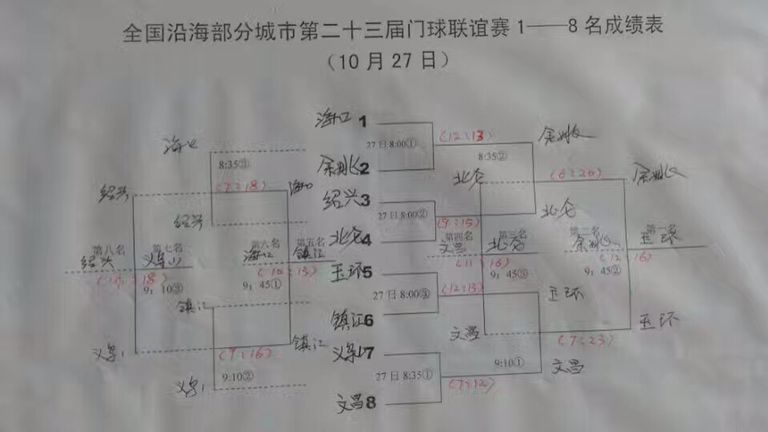 全国沿海部分城市第二十三届门球联谊赛1——8名成绩表
(10月27日)
海口 1
27日8:00①
(12:13)
8:35②
2
绍兴 3
27日8:00②
(9:15)
北仑 4
北仑
北仑
玉环 5
27日8:00③
(12:13)
玉环
镇江 6
7
27日8:35①
(7:12)
9:10①
文昌 8
文昌
文昌
(6:20)
(7:23)
玉环
第四名
文昌
第三名
北仑
(11:16)
9:45③
第二名
第一名
玉环
9:45②
海口
8:35③
(7:18)
海口
绍兴
绍兴
第八名
绍兴
第七名
9:10③
第六名
海口
第五名
镇江
(10:13)
9:45①
镇江
(7:16)
镇江
9:10②